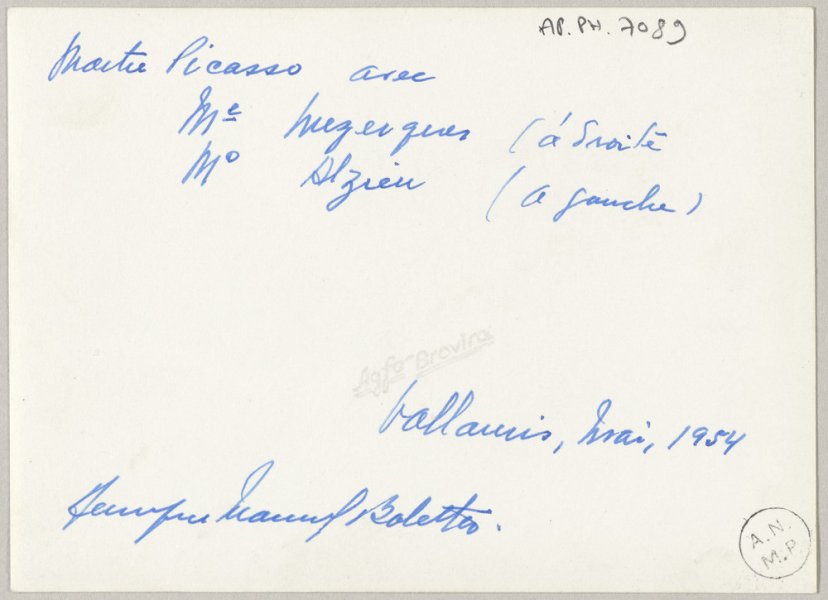 AP. PH. 7089
Maitre Picasso avec
Me (à droite
Mo Alzieu (a gauche)
Agfa-Brovira
Vallauris, Mai, 1954
Manuel
A.N.
M.P